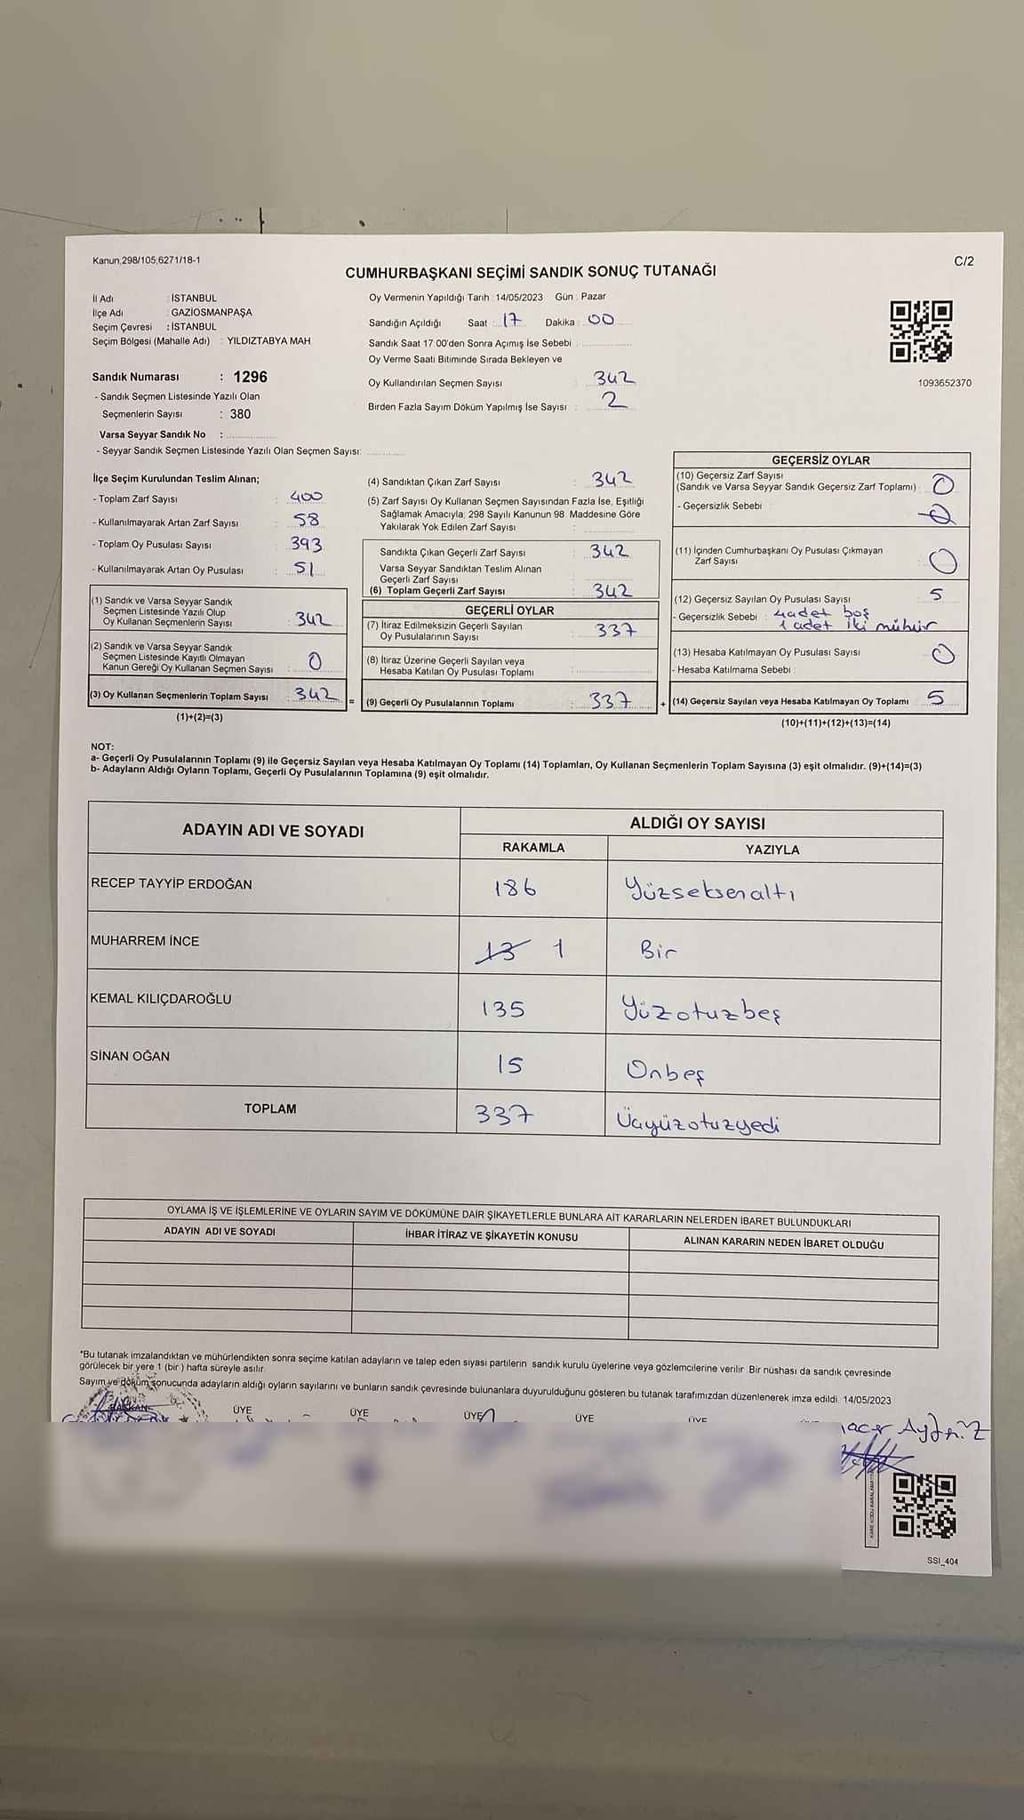 Kanun.298/105;6271/18-1
C/2
CUMHURBAŞKANI SEÇİMİ SANDIK SONUÇ TUTANAĞI
İl Adı : İSTANBUL
İlçe Adı : GAZİOSMANPAŞA
Seçim Çevresi : İSTANBUL
Seçim Bölgesi (Mahalle Adı) : YILDIZTABYA MAH
Sandık Numarası : 1296
- Sandık Seçmen Listesinde Yazılı Olan
Seçmenlerin Sayısı : 380
Varsa Seyyar Sandık No :
- Seyyar Sandık Seçmen Listesinde Yazılı Olan Seçmen Sayısı:
Oy Vermenin Yapıldığı Tarih : 14/05/2023 Gün : Pazar
Sandığın Açıldığı Saat : 17 Dakika : 00
Sandık Saat 17.00'den Sonra Açımış İse Sebebi :
Oy Verme Saati Bitiminde Sırada Bekleyen ve
Oy Kullandırılan Seçmen Sayısı : 342
Birden Fazla Sayım Döküm Yapılmış İse Sayısı : 2
1093652370
İlçe Seçim Kurulundan Teslim Alınan;
- Toplam Zarf Sayısı : 400
- Kullanılmayarak Artan Zarf Sayısı : 58
- Toplam Oy Pusulası Sayısı : 393
- Kullanılmayarak Artan Oy Pusulası : 51
(1) Sandık ve Varsa Seyyar Sandık
Seçmen Listesinde Yazılı Olup
Oy Kullanan Seçmenlerin Sayısı : 342
(2) Sandık ve Varsa Seyyar Sandık
Seçmen Listesinde Kayıtlı Olmayan
Kanun Gereği Oy Kullanan Seçmen Sayısı : 0
(3) Oy Kullanan Seçmenlerin Toplam Sayısı : 342 =
(1)+(2)=(3)
(4) Sandıktan Çıkan Zarf Sayısı : 342
(5) Zarf Sayısı Oy Kullanan Seçmen Sayısından Fazla İse, Eşitliği
Sağlamak Amacıyla; 298 Sayılı Kanunun 98. Maddesine Göre
Yakılarak Yok Edilen Zarf Sayısı :
Sandıkta Çıkan Geçerli Zarf Sayısı : 342
Varsa Seyyar Sandıktan Teslim Alınan
Geçerli Zarf Sayısı :
(6) Toplam Geçerli Zarf Sayısı : 342
GEÇERLİ OYLAR
(7) İtiraz Edilmeksizin Geçerli Sayılan
Oy Pusulalarının Sayısı : 337
(8) İtiraz Üzerine Geçerli Sayılan veya
Hesaba Katılan Oy Pusulası Toplamı :
(9) Geçerli Oy Pusulalarının Toplamı : 337 +
GEÇERSİZ OYLAR
(10) Geçersiz Zarf Sayısı
(Sandık ve Varsa Seyyar Sandık Geçersiz Zarf Toplamı) : 0
- Geçersizlik Sebebi : 0
(11) İçinden Cumhurbaşkanı Oy Pusulası Çıkmayan
Zarf Sayısı : 0
(12) Geçersiz Sayılan Oy Pusulası Sayısı : 5
- Geçersizlik Sebebi : 4 adet boş
1 adet iki mühür
(13) Hesaba Katılmayan Oy Pusulası Sayısı : 0
- Hesaba Katılmama Sebebi :
(14) Geçersiz Sayılan veya Hesaba Katılmayan Oy Toplamı : 5
(10)+(11)+(12)+(13)=(14)
NOT:
a- Geçerli Oy Pusulalarının Toplamı (9) ile Geçersiz Sayılan veya Hesaba Katılmayan Oy Toplamı (14) Toplamları, Oy Kullanan Seçmenlerin Toplam Sayısına (3) eşit olmalıdır. (9)+(14)=(3)
b- Adayların Aldığı Oyların Toplamı, Geçerli Oy Pusulalarının Toplamına (9) eşit olmalıdır.
ADAYIN ADI VE SOYADI ALDIĞI OY SAYISI
RAKAMLA YAZIYLA
RECEP TAYYİP ERDOĞAN 186 Yüzseksenaltı
MUHARREM İNCE 13 1 Bir
KEMAL KILIÇDAROĞLU 135 Yüzotuzbeş
SİNAN OĞAN 15 Onbeş
TOPLAM 337 Üçyüzotuzyedi
OYLAMA İŞ VE İŞLEMLERİNE VE OYLARIN SAYIM VE DÖKÜMÜNE DAİR ŞİKAYETLERLE BUNLARA AİT KARARLARIN NELERDEN İBARET BULUNDUKLARI
ADAYIN ADI VE SOYADI İHBAR İTİRAZ VE ŞİKAYETİN KONUSU ALINAN KARARIN NEDEN İBARET OLDUĞU
*Bu tutanak imzalandıktan ve mühürlendikten sonra seçime katılan adayların ve talep eden siyasi partilerin sandık kurulu üyelerine veya gözlemcilerine verilir. Bir nüshası da sandık çevresinde
görülecek bir yere 1 (bir ) hafta süreyle asılır.
Sayım ve döküm sonucunda adayların aldığı oyların sayılarını ve bunların sandık çevresinde bulunanlara duyurulduğunu gösteren bu tutanak tarafımızdan düzenlenerek imza edildi. 14/05/2023
BAŞKAN ÜYE ÜYE ÜYE ÜYE ÜYE
SSI_404